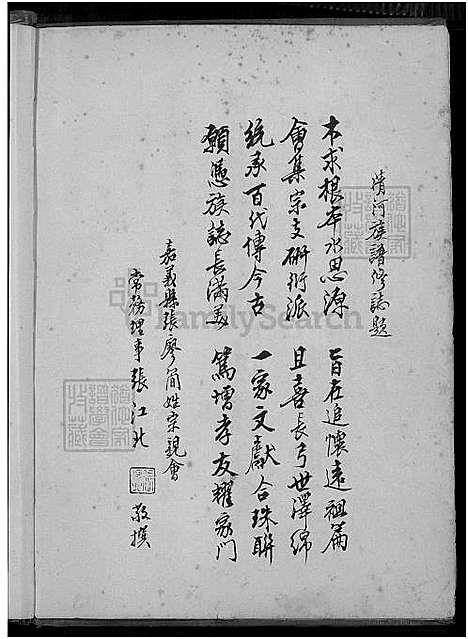 清河族譜修誌題
木求根本水思源　旨在追懷遠祖篇
會集宗支研衍派　且喜長弓世澤綿
統承百代傳今古　一家文獻合珠聯
願憑族誌長滿美　篤增孝友耀家門
嘉義縣張廖簡姓宗親會
常務理事張江北　敬撰
FamilySearch